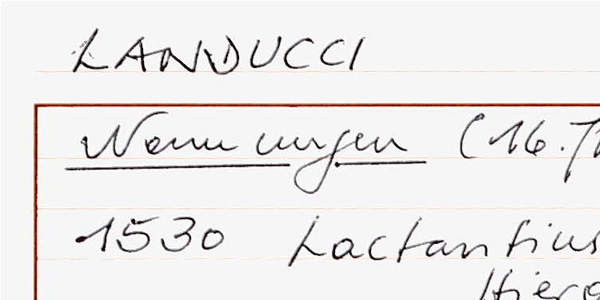 LANDUCCI
Nennungen (16.
1530 Lactantius
Hier